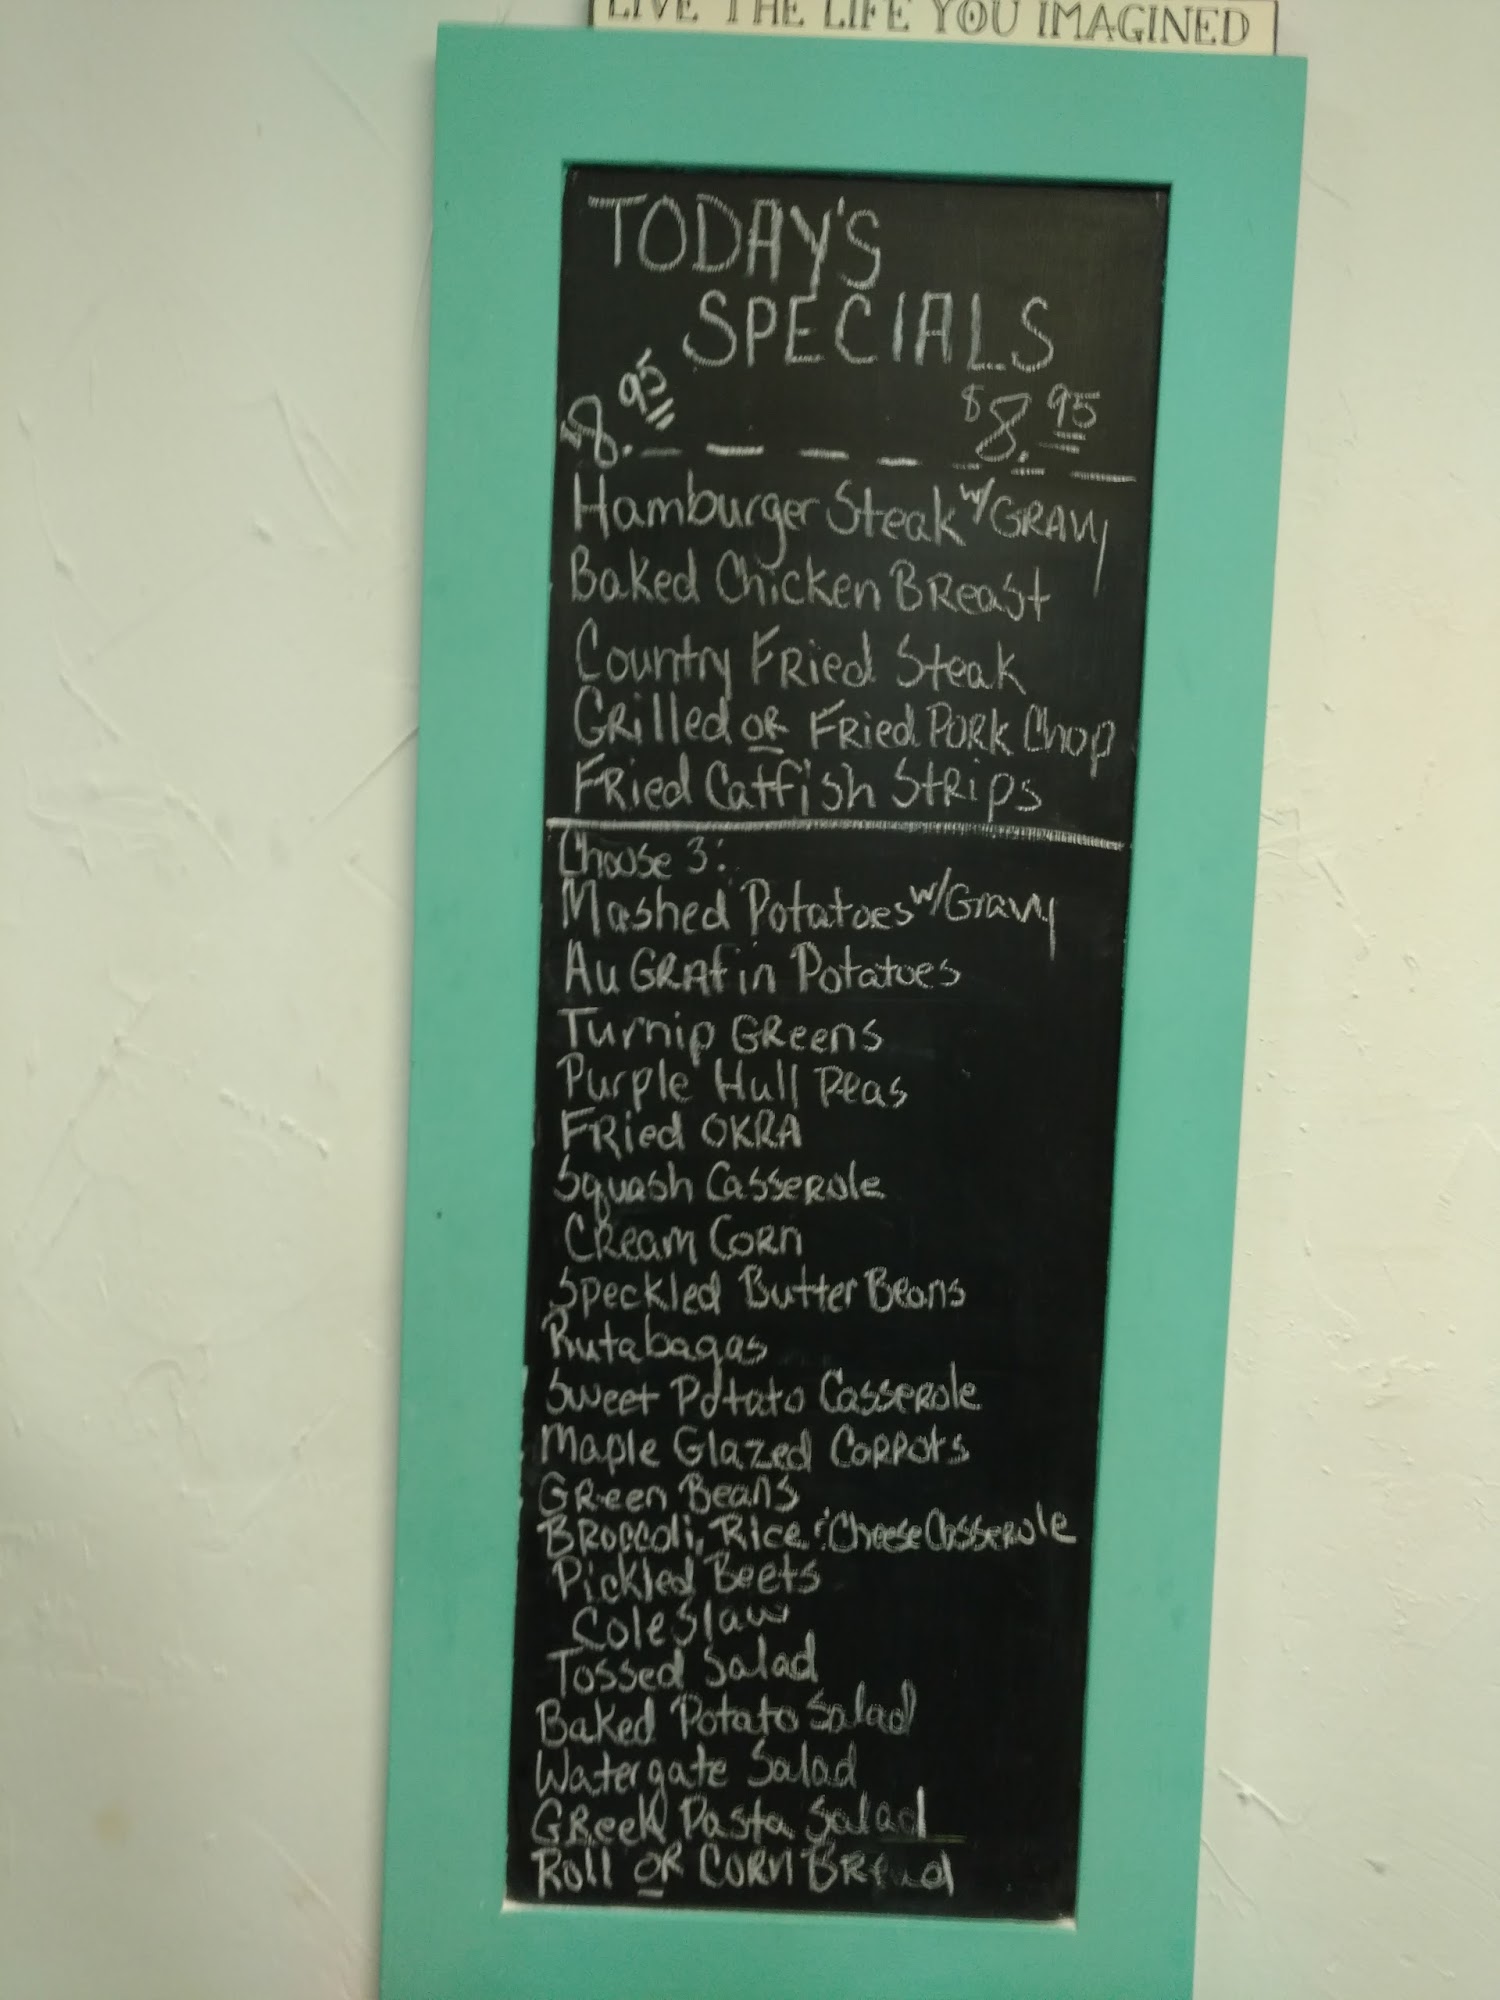 LIVE THE LIFE YOU IMAGINED
TODAY'S
SPECIALS
$8.95 $8.95
Hamburger Steak w/GRAVY
Baked Chicken BReast
Country FRied Steak
GRilled OR FRied PORK Chop
FRied Catfish StRips
Choose 3:
Mashed Potatoes w/Gravy
Au GRAtin Potatoes
Turnip GReens
Purple Hull Peas
FRied OKRA
Squash CasseRole
CReam CoRn
Speckled Butter Beans
Rutabagas
Sweet Potato CasseRole
Maple Glazed CaRRots
GReen Beans
BRoccoli, Rice & Cheese CasseRole
Pickled Beets
Cole Slaw
Tossed Salad
Baked Potato Salad
Watergate Salad
GReek Pasta Salad
Roll OR CORN BRead